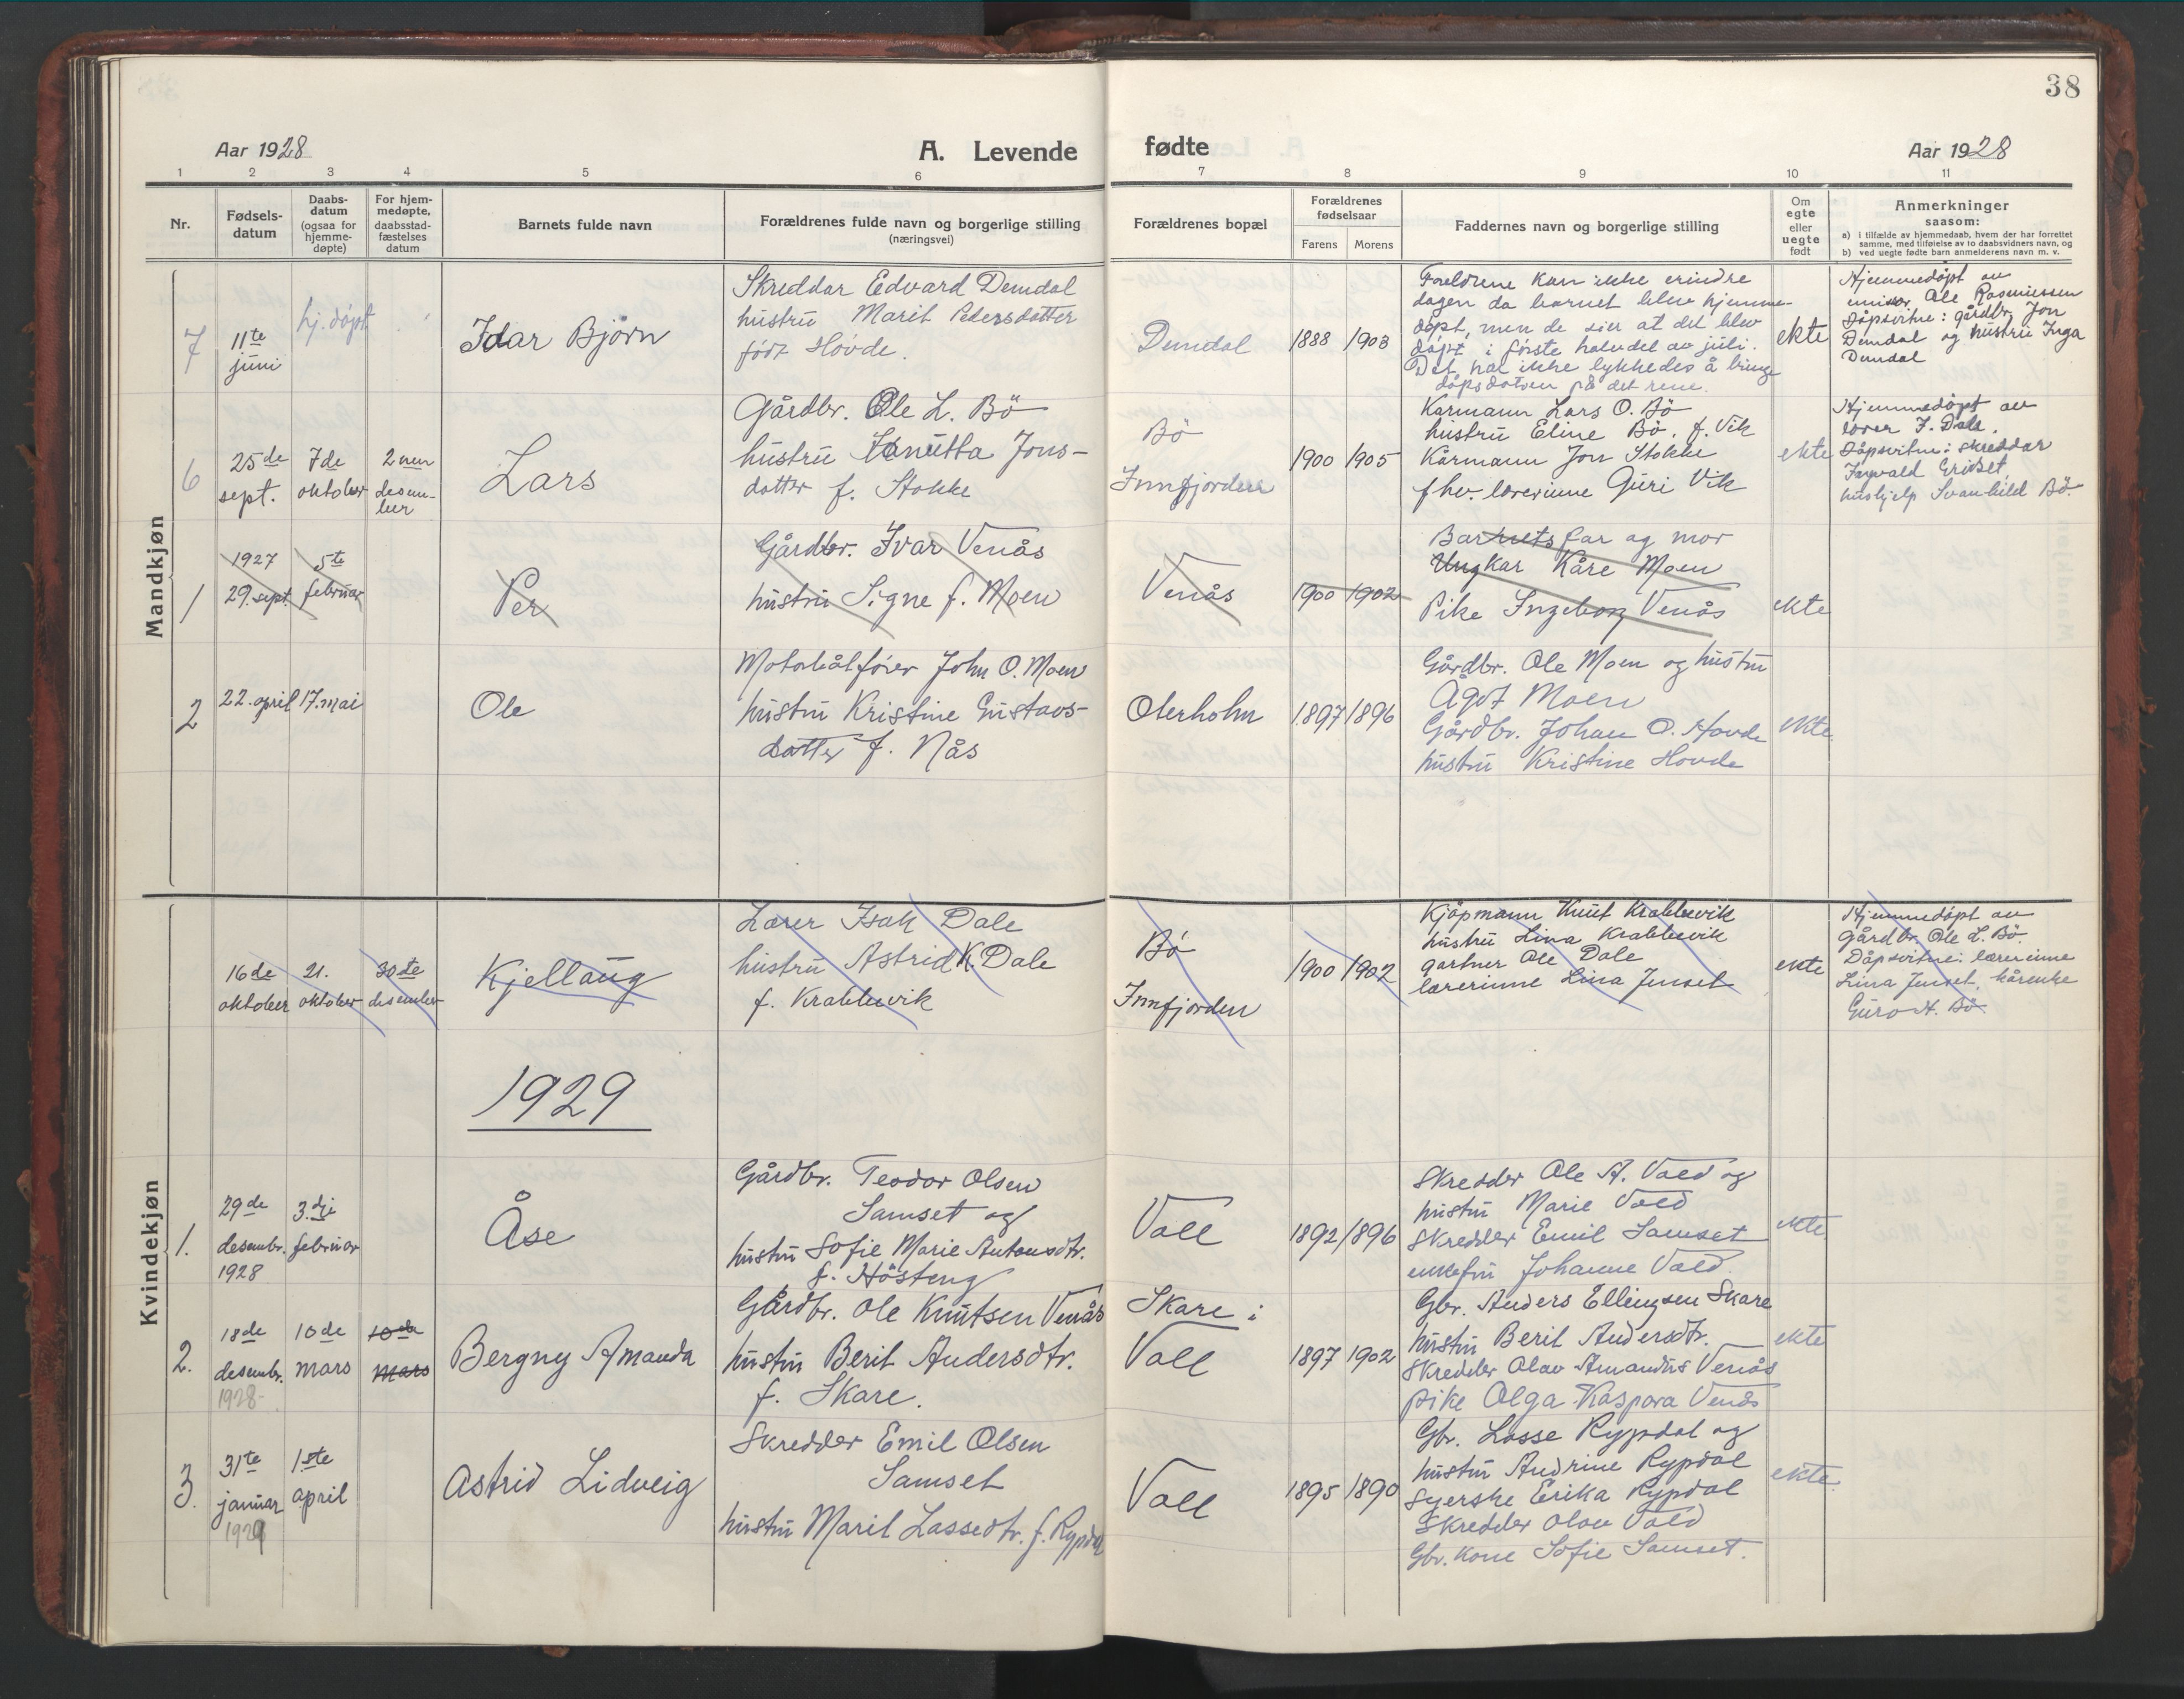 38
Aar 1928
A. Levende fødte
Aar 1928
1 2 3 4 5 6 7 8 9 10 11
Nr.
Fødsels-
datum
Daabs-
datum
(ogsaa for
hjemme-
døpte)
For hjem-
medøpte,
daabsstad-
fæstelses
datum
Barnets fulde navn
Forældrenes fulde navn og borgerlige stilling
(næringsvei)
Forældrenes bopæl
Forældrenes
fødselsaar
Farens Morens
Faddernes navn og borgerlige stilling
Om
egte
eller
uegte
født
Anmerkninger
saasom:
a) i tilfælde av hjemmedaab, hvem der har forrettet
samme, med tilføielse av to daabsvidners navn, og
b) ved uegte fødte barn anmelderens navn m. v.
Mandkjøn
7
11te
juni
hj. døpt
Idar Bjørn
Skreddar Edvard Demdal
hustru Marit Pedersdatter
født Hovde.
Demdal
1888 1903
Foreldrene kan ikke erindre
dagen da barnet blev hjemme-
døpt, men de sier at det blev
døpt i første halvdel av juli.
Det har ikke lykkedes å bringe
dåpsdatoen på det rene.
ekte
Hjemmedøpt av
Ole Rasmussen
Dåpsvitne: gårdbr. Jon
Demdal og hustru Inga
Demdal
6
25de
sept.
7de
oktober
2nen
desem-
ber
Lars
Gårdbr. Ole L. Bö
hustru Jons-
datter f. Stokke
Bö
Innfjorden
1900 1905
Kårmann Lars O. Bö
hustru Eline Bö, f. Vik
Kårmann Jon Stokke
fhv. lærerinne Guri Vik
ekte
Hjemmedøpt av
lærer I. Dale.
Dåpsvitne: skreddar
Ingvald
hushjelp Svanhild Bö.
1
1927
29. sept.
5te
februar
Per
Gårdbr. Ivar Venås
hustru Signe f. Moen
Venås
1900 1902
Barnets far og mor
Ungkar Kåre Moen
Pike Ingeborg Venås
ekte
2
22. april
17. mai
Ole
Motorbåtfører John O. Moen
hustru Kristine Gustavs-
datter f. Nås
Oterholm
1897 1896
Gårdbr. Ole Moen og hustru
Ågot Moen
Gårdbr. Johan O. Hovde
hustru Kristine Hovde
ekte.
Kvindekjøn
16de
oktober
21.
oktober
30te
desember
Kjellaug
Lærer Isak Dale
hustru Astrid K. Dale
f. Krabbevik
Bö
Innfjorden
1900 1902
Kjøpmann Knut Krabbevik
hustru Lina Krabbevik
gartner Ole Dale
lærerinne Lina Jenset
ekte
Hjemmedøpt av
gårdbr. Ole L. Bö.
Dåpsvitne: lærerinne
Lina Jenset, kårenke
Guro H. Bö.
1929
1.
29de
desembr.
1928
3.dje
februar
Åse
Gårdbr. Teodor Olsen
Samset og
hustru Sofie Marie Antonsdtr.
f. Hösteng
Voll
1892 1896
Skredder Ole A. Vold og
hustru Marie Vold
Skredder Emil Samset
enkefru Johanne Vold.
ekte
2.
18de
desembr.
1928
10de
mars
10de
mars
Bergny Amanda
Gårdbr. Ole Knutsen Venås
hustru Berit Andersdtr.
f. Skare.
Skare i
Voll
1897 1902
Gbr. Anders Ellingsen Skare
hustru Berit Andersdtr.
Skredder Olav Amandus Venås
pike Olga Kaspara Venås
ekte
3.
31te
januar
1929
1ste
april
Astrid Lidveig
Skredder Emil Olsen
Samset
hustru Marit Lassedtr. f. Rypdal
Voll
1895 1890
Gbr. Lasse Rypdal og
hustru Andrine Rypdal
Syerske Erika Rypdal
Skredder Olav Vold
Gbr. kone Sofie Samset.
ekte.